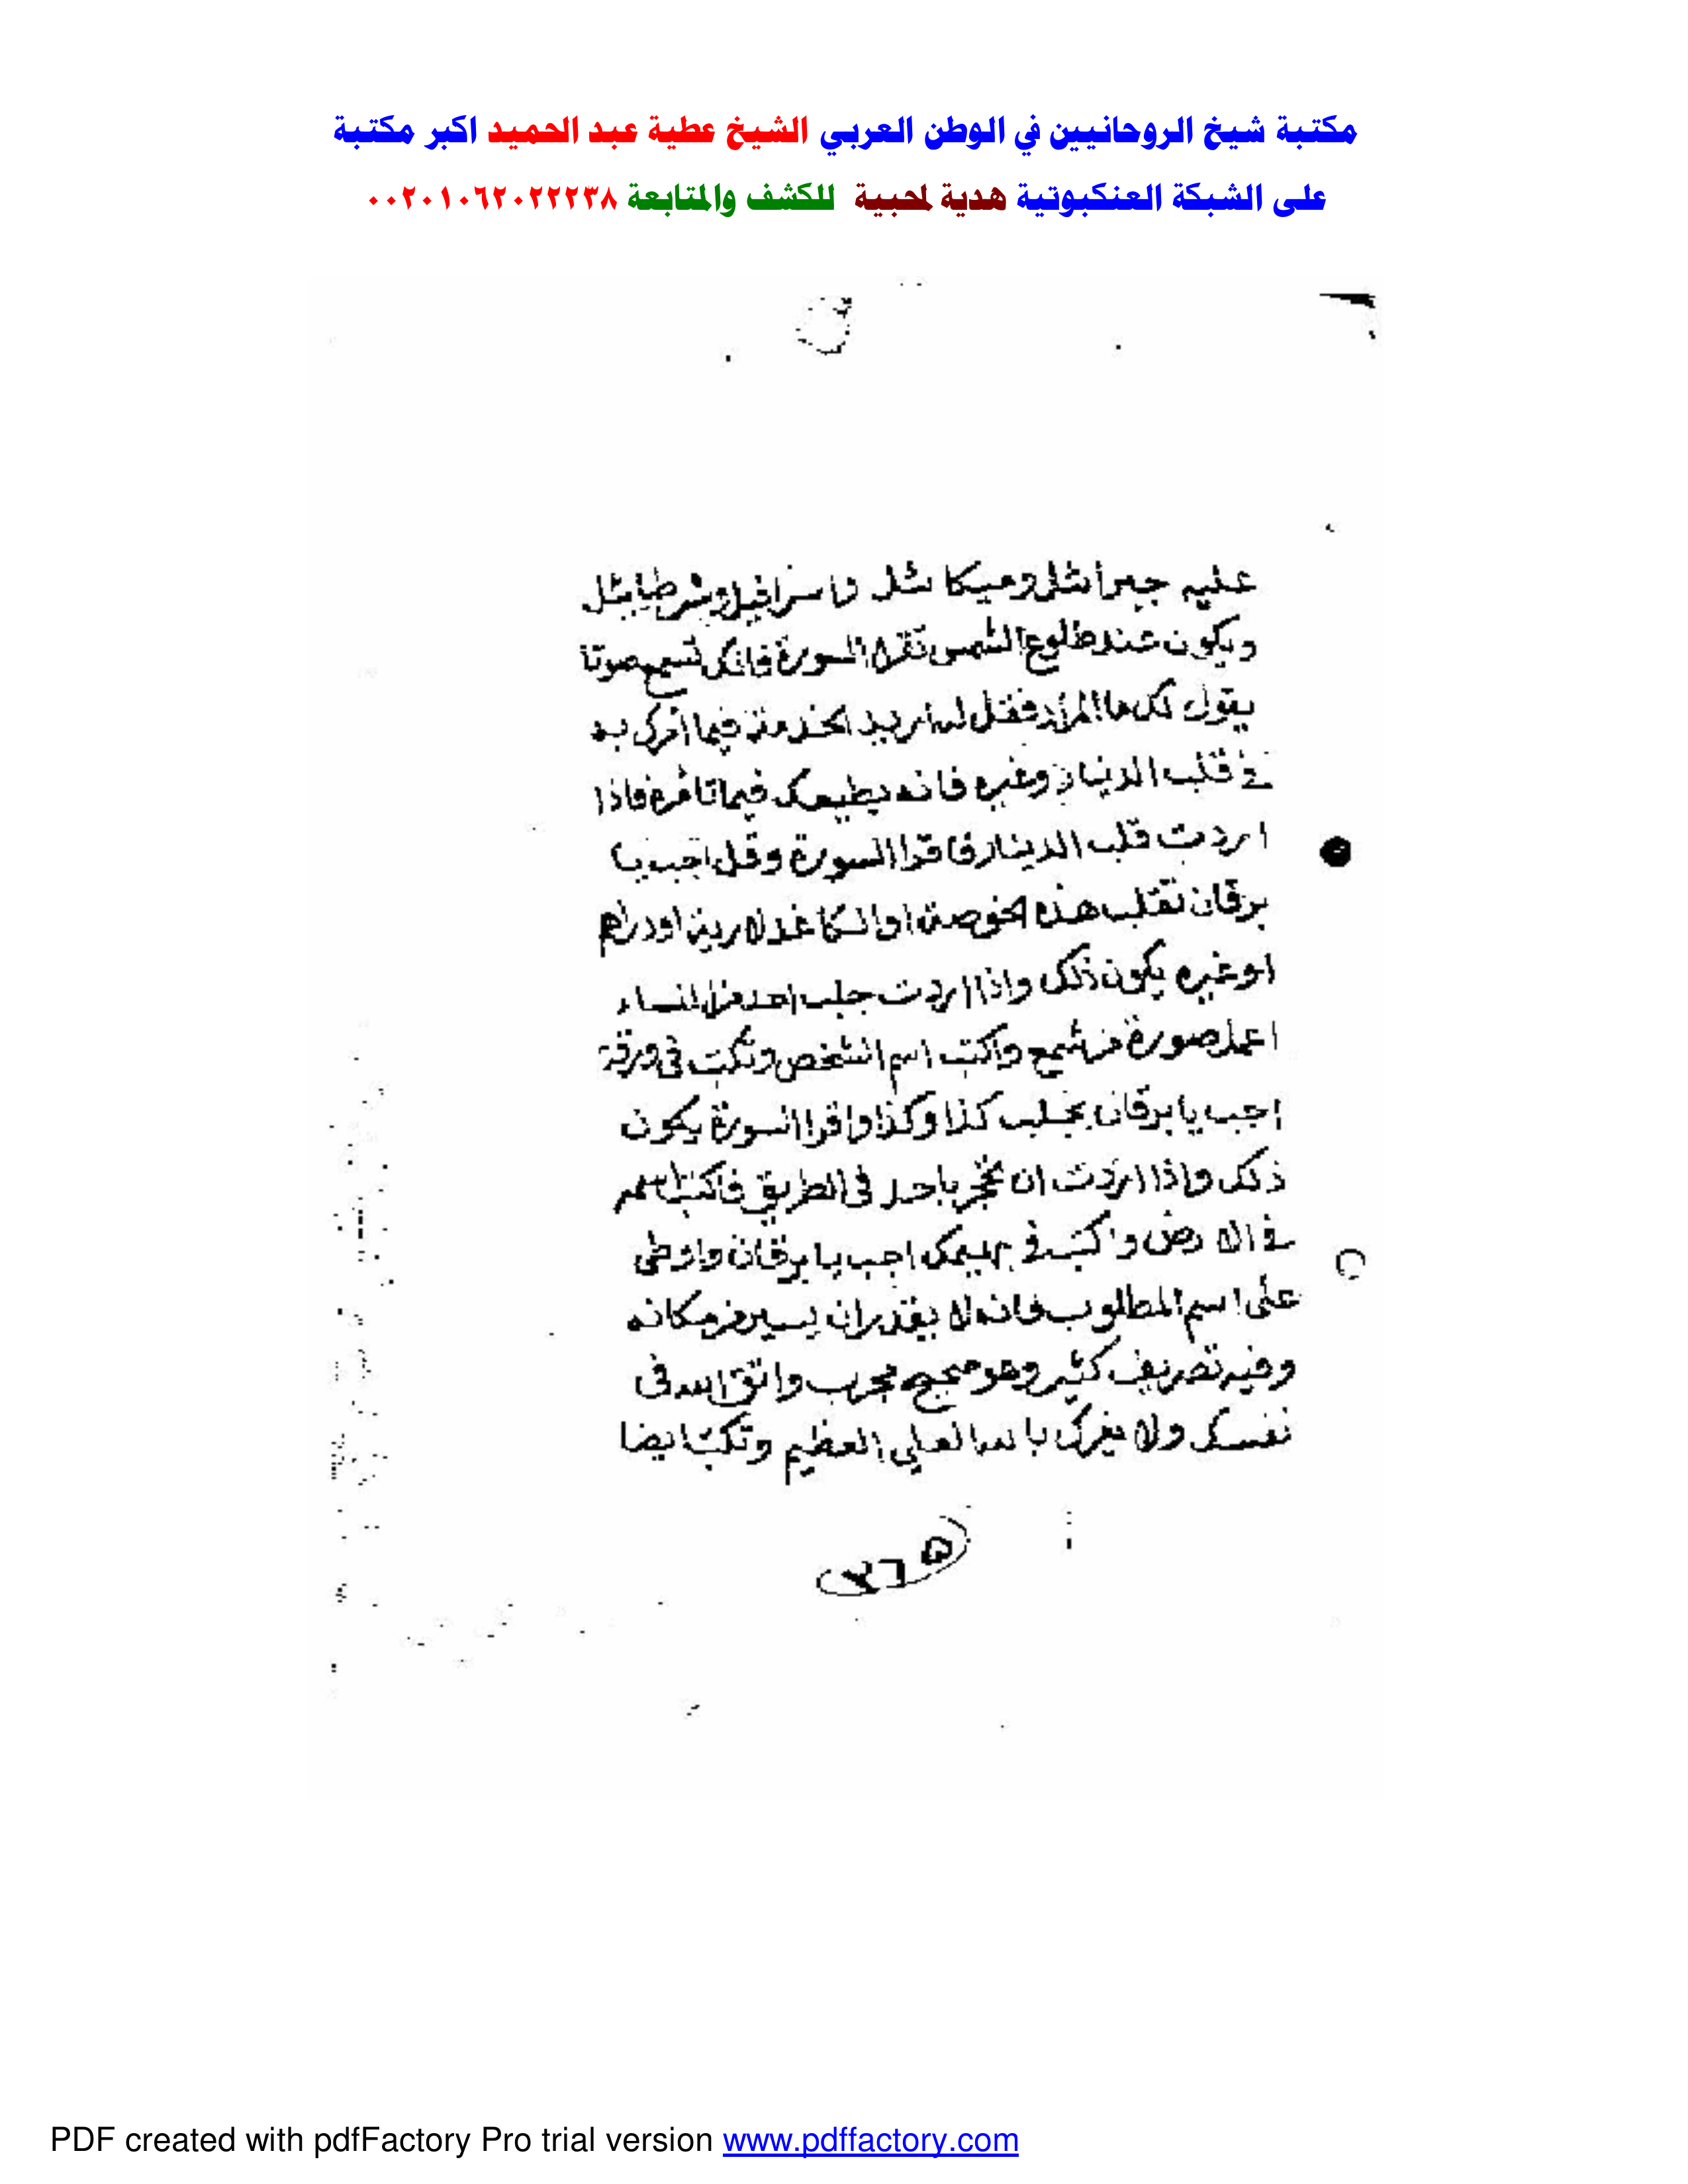 مكتبة شيخ الروحانيين في الوطن العربي الشيخ عطية عبد الحميد اكبر مكتبة
على الشبكة العنكبوتية هدية لمحبية للكشف والمتابعة ٠٠٢٠١٠٦٢٠٢٢٢٣٨
عليه جبرائيل وميكائيل واسرافيل
ويكون عند طلوع الشمس تقرا السورة فانك تسمع صوتا
يقول لك ما المراد فقل له اريد الخدمة فيما امرك به
في قلب الدينار وغيره فانه يطيعك فيما تامره فاذا
اردت قلب الدينار فاقرا السورة وقل اجب يا
برقان تقلب هذه الخوصة او الكاغد لا او دراهم
او غيره يكون ذلك واذا اردت جلب احد من النساء
اعمل صورة من شمع واكتب اسم الشخص وتكتب في ورقة
اجب يا برقان بجلب كذا وكذا واقرا السورة يكون
ذلك واذا اردت ان باحد في الطريق فاكتب اسمه
في الارض واكتب في اجب يا برقان واوطى
على اسم المطلوب فانه لا يقدر ان يسير من مكانه
وفيه تصريف كثير وهو صحيح مجرب واتق الله في
نفسك ولا يغرك بالله العلي العظيم وتكتب ايضا
PDF created with pdfFactory Pro trial version www.pdffactory.com